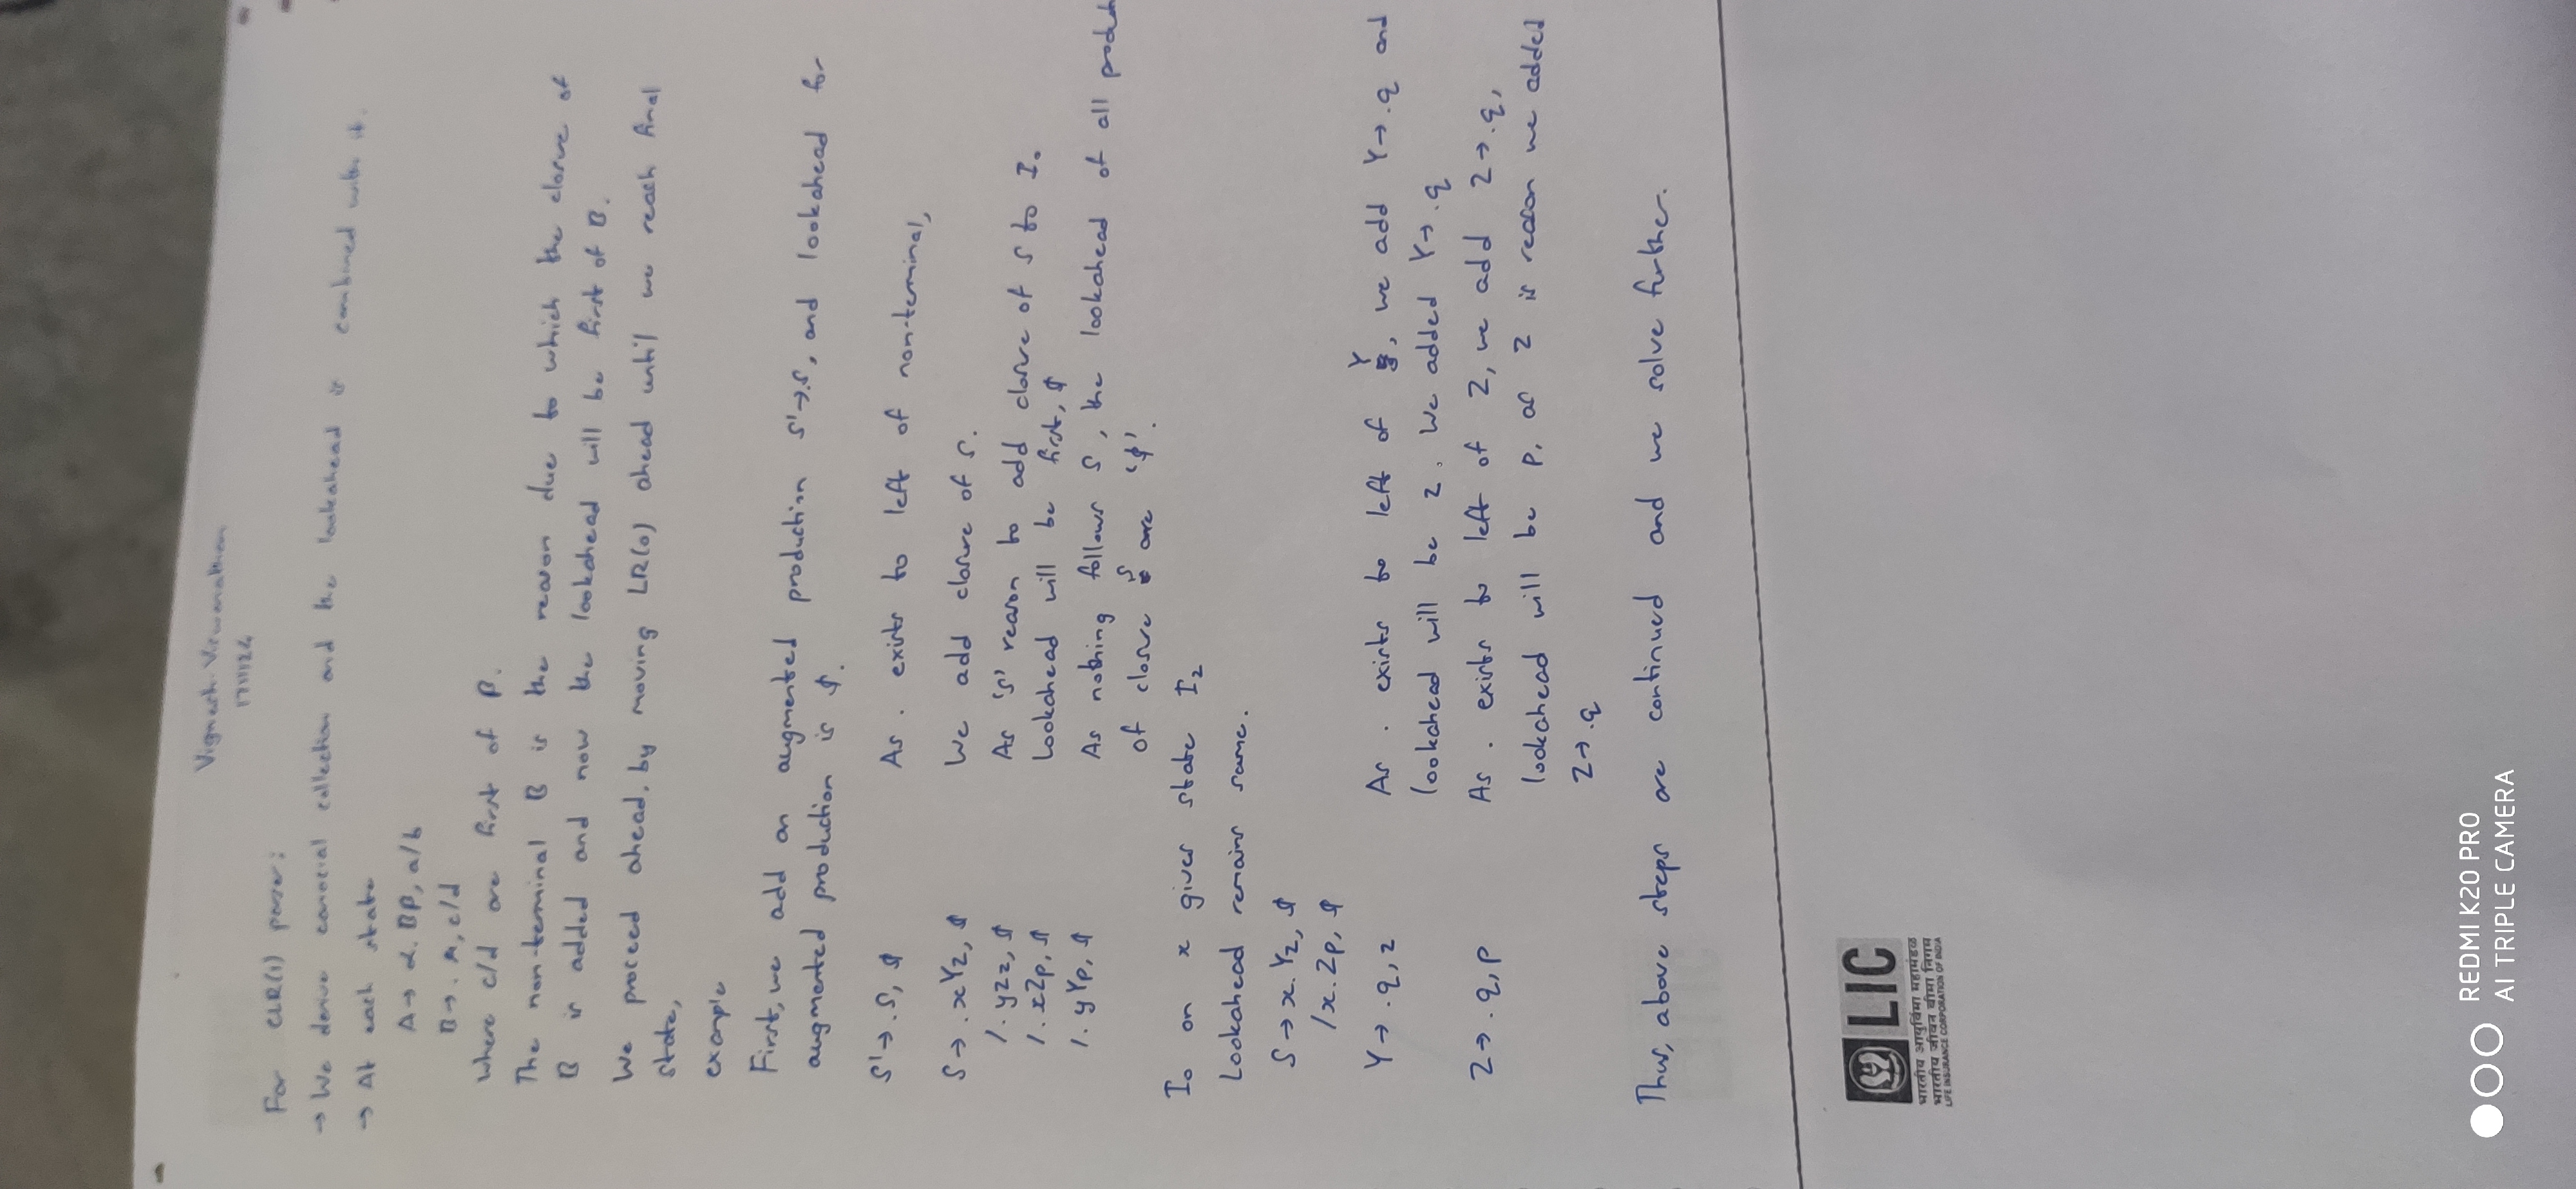 Vignesh Viswanathan
1711124
For CLR(1) parser:
→ We derive canocial collection and the lookahead is combined with it.
→ At each state
A → α. Bβ, a/b
B → . A, c/d
where c/d are first of β.
The non-terminal B is the reason due to which the closure of
B is added and now the lookahead will be first of B.
We proceed ahead, by moving LR(0) ahead until we reach final
state,
example
First, we add an augmented production S' → .S, and lookahead for
augmented production is $.
S' → .S, $ As . exists to left of non-terminal,
S → .xYz, $ We add closure of S.
/. yZz, $ As 'S' reason to add closure of S to I₀
/. xZp, $ Lookahead will be first, $
/. yYp, $ As nothing follows S, the lookahead of all product
of closure S are '$'.
I₀ on x gives state I₂
Lookahead remains same.
S → x. Yz, $
/x. Zp, $
Y → .q, z As . exists to left of Y, we add Y → .q and
lookahead will be z. We added Y → .q
Z → .q, p As . exists to left of Z, we add Z → .q,
lookahead will be p, as Z is reason we added
Z → .q
Thus, above steps are continued and we solve further.
LIC
भारतीय आयुर्विमा महामंडळ
भारतीय जीवन बीमा निगम
LIFE INSURANCE CORPORATION OF INDIA
REDMI K20 PRO
AI TRIPLE CAMERA